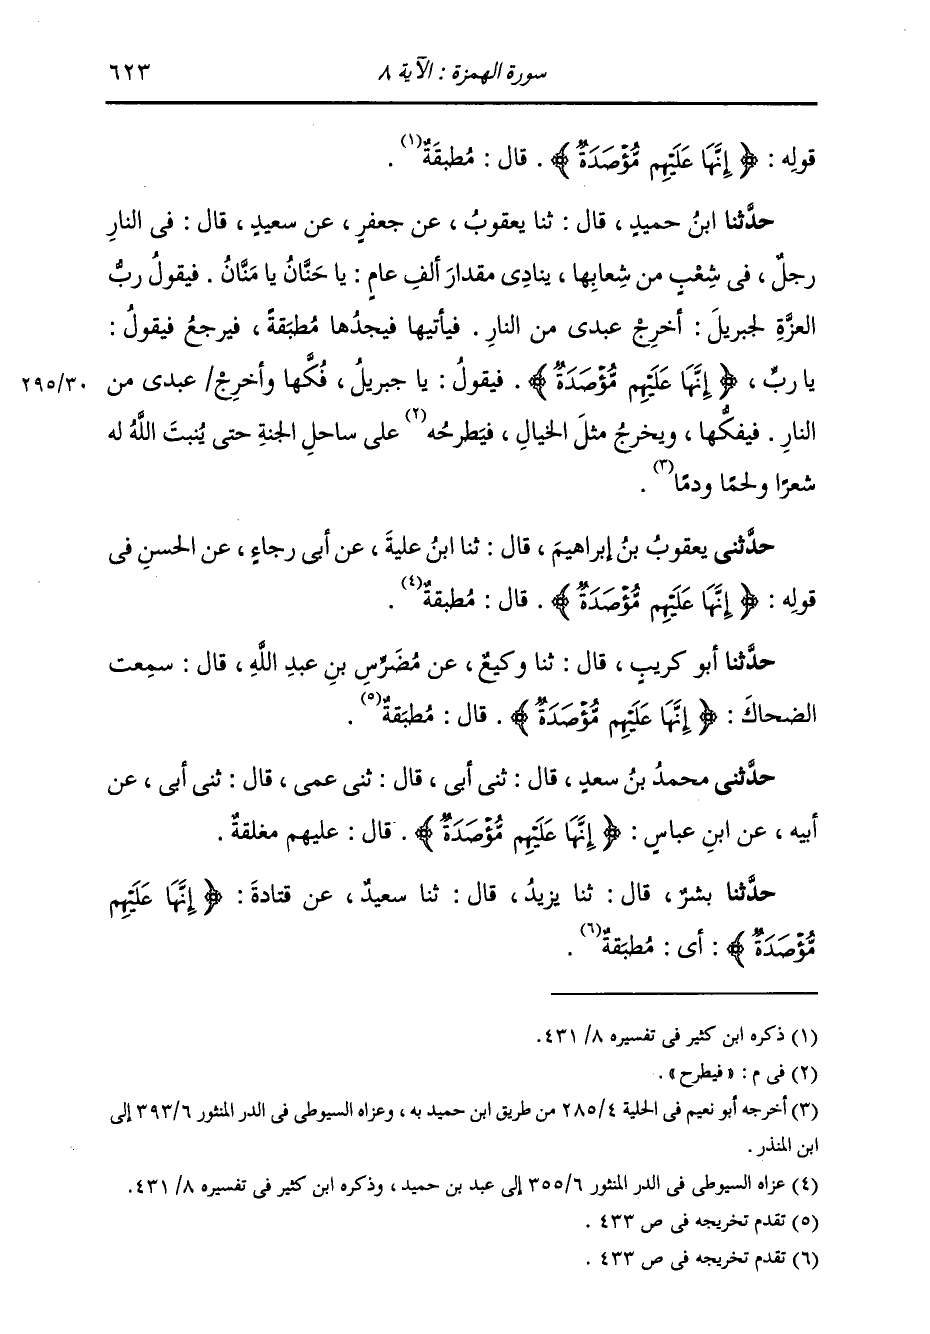 سورة الهمزة : الآية ٨
٦٢٣
قولِه : ﴿ إِنَّهَا عَلَيْهِم مُّؤْصَدَةٌ ﴾ . قال : مُطبقَةٌ(١) .
حدَّثنا ابنُ حميدٍ ، قال : ثنا يعقوبُ ، عن جعفرٍ ، عن سعيدٍ ، قال : فى النارِ
رجلٌ ، فى شِعْبٍ من شِعابِها ، ينادِى مقدارَ ألفِ عامٍ : يا حَنَّانُ يا مَنَّانُ . فيقولُ ربُّ
العزَّةِ لجبريلَ : أخرِجْ عبدى من النارِ . فيأتيها فيجدُها مُطبَقةً ، فيرجعُ فيقولُ :
يا ربِّ ، ﴿ إِنَّهَا عَلَيْهِم مُّؤْصَدَةٌ ﴾ . فيقولُ : يا جبريلُ ، فُكَّها وأخرِجْ/ عبدى من
٢٩٥/٣٠
النارِ . فيفكُّها ، ويخرجُ مثلَ الخيالِ ، فيَطرحُه(٢) على ساحلِ الجنةِ حتى يُنبتَ اللَّهُ له
شعرًا ولحمًا ودمًا(٣) .
حدَّثنى يعقوبُ بنُ إبراهيمَ ، قال : ثنا ابنُ عليةَ ، عن أبى رجاءٍ ، عن الحسنِ فى
قولِه : ﴿ إِنَّهَا عَلَيْهِم مُّؤْصَدَةٌ ﴾ . قال : مُطبقةٌ(٤) .
حدَّثنا أبو كريبٍ ، قال : ثنا وكيعٌ ، عن مُضَرِّسِ بنِ عبدِ اللَّهِ ، قال : سمِعت
الضحاكَ : ﴿ إِنَّهَا عَلَيْهِم مُّؤْصَدَةٌ ﴾ . قال : مُطبَقةٌ(٥) .
حدَّثنى محمدُ بنُ سعدٍ ، قال : ثنى أبى ، قال : ثنى عمى ، قال : ثنى أبى ، عن
أبيه ، عن ابنِ عباسٍ : ﴿ إِنَّهَا عَلَيْهِم مُّؤْصَدَةٌ ﴾ . قال : عليهم مغلقةٌ .
حدَّثنا بشرٌ ، قال : ثنا يزيدُ ، قال : ثنا سعيدٌ ، عن قتادةَ : ﴿ إِنَّهَا عَلَيْهِم
مُّؤْصَدَةٌ ﴾ : أى : مُطبَقةٌ(٦) .
(١) ذكره ابن كثير فى تفسيره ٨/ ٤٣١.
(٢) فى م : «فيطرح» .
(٣) أخرجه أبو نعيم فى الحلية ٢٨٥/٤ من طريق ابن حميد به ، وعزاه السيوطى فى الدر المنثور ٣٩٣/٦ إلى
ابن المنذر .
(٤) عزاه السيوطى فى الدر المنثور ٣٥٥/٦ إلى عبد بن حميد ، وذكره ابن كثير فى تفسيره ٨/ ٤٣١.
(٥) تقدم تخريجه فى ص ٤٣٣ .
(٦) تقدم تخريجه فى ص ٤٣٣ .